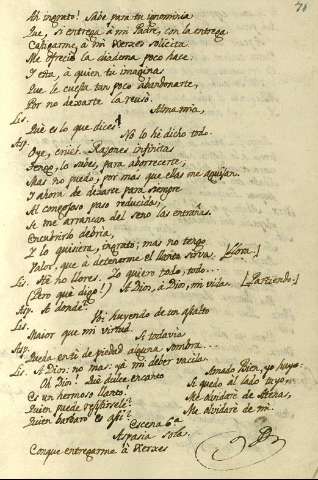 71
Ah ingrato! Sabe para tu ignominia
Que, si entrega à mi Padre, con la entrega
Casarme, à mi Xerxes solicita
Me ofreció la diadema poco hace
Y esta, à quien tu imaginas
Que le cuesta tan poco abandonarte,
Por no dexarte la reusó.
Lis. Alma mia,
Què es lo que dices?
Asp. No lo hè dicho todo.
Oye, cruel. Razones infinitas
Tengo, lo sabes, para aborrecerte;
Mas no puedo, por mas que ellas me aguijan.
Y ahora de dexarte para siempre
Al congojoso paso reducida,
Se me arrancan del seno las entrañas.
Encubrirlo debria,
Y lo quisiera, ingrato; mas no tengo
Valor, que à detenerme el llanto sirva. [Llora.]
Lis. Ah no llores. Lo quiero todo, todo...
(Pero què digo!) A Dios, à Dios, mi vida. [Partiendo.]
Asp. A donde?
Lis. Voi huyendo de un asalto
Maior que mi virtud.
Asp. Si todavia
Queda en ti de piedad alguna sombra...
Lis. A Dios: no mas: ya mi deber vacila.
Oh Dios! Què dulce encanto
Es un hermoso llanto.
Quien puede resistirsele?
Quien barbaro es asi?
Amado Bien, yo huyo:
Si quedo al lado tuyo,
Me olvidarè de Atenas,
Me olvidarè de mi.
Escena 6ª
Aspasia sola.
Conque entregarme à Xerxes